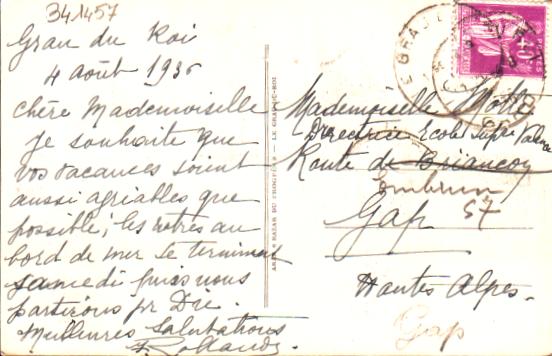 341457
Grau du Roi
4 août 1936
Chère Mademoiselle
Je souhaite que
vos vacances soient
aussi agréables que
possible; les nôtres au
bord de mer se terminent
samedi puis nous
partirons pr
Meilleures Salutations
ARLES BAZAR DU PROGRÈS — LE GRAU-DU-ROI
LE GRAU
Mademoiselle Motte
Directrice Ecole Supre
Route de Briançon
Embrun
57
Gap
Hautes Alpes.
Gap